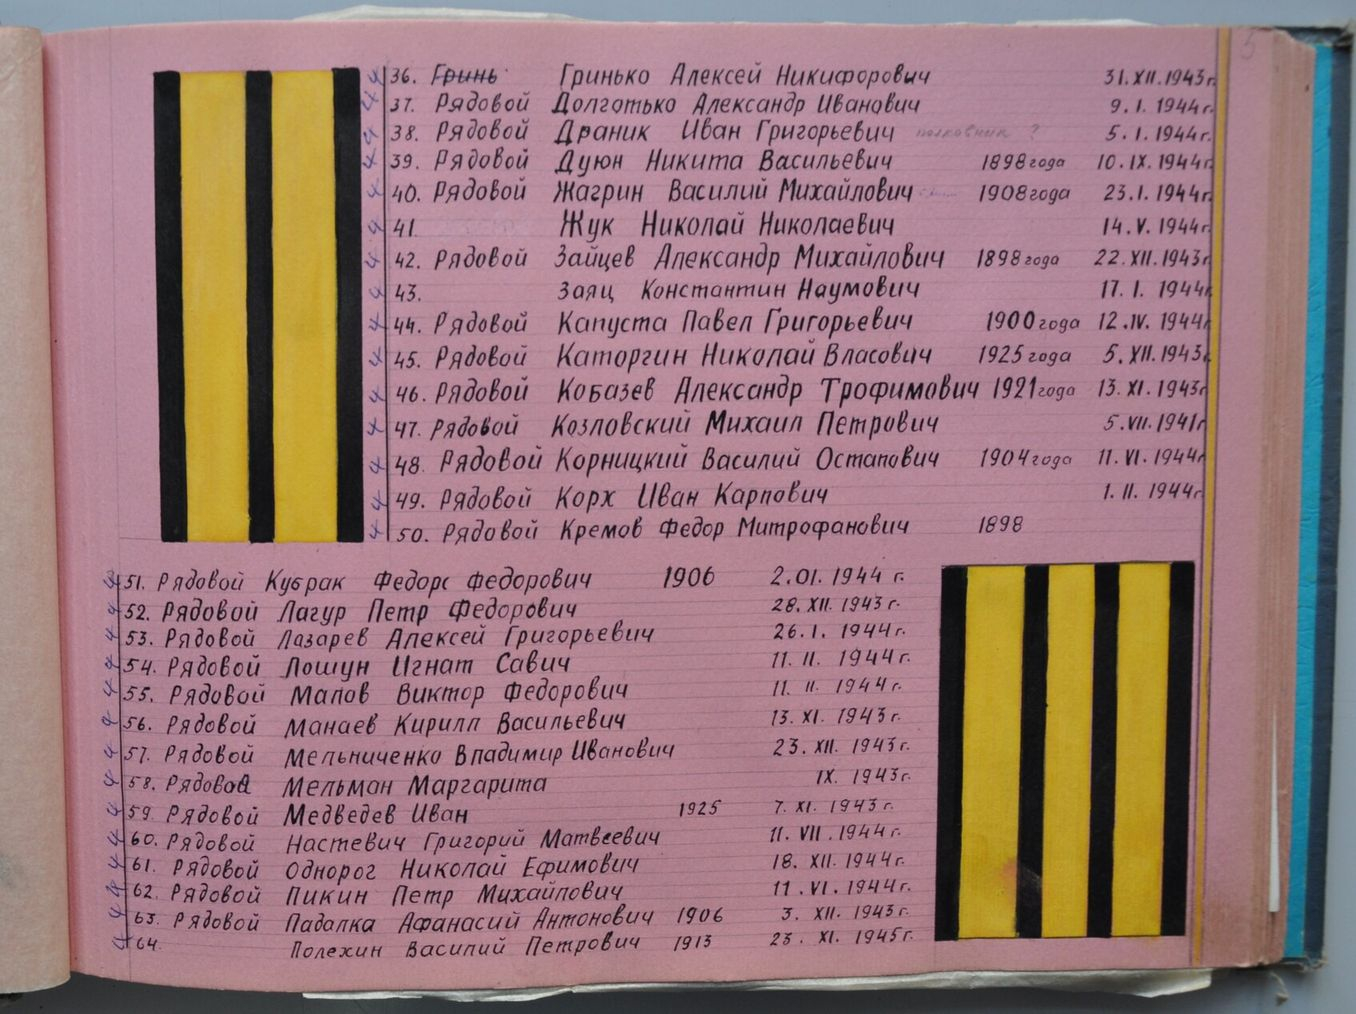 5
36. Гринь Гринько Алексей Никифорович 31.XII.1943г.
37. Рядовой Долготько Александр Иванович 9.I.1944г.
38. Рядовой Драник Иван Григорьевич полковник ? 5.I.1944г.
39. Рядовой Дуюн Никита Васильевич 1898 года 10.IX.1944г.
40. Рядовой Жагрин Василий Михайлович 1908 года 23.I.1944г.
41. Жук Николай Николаевич 14.V.1944г.
42. Рядовой Зайцев Александр Михайлович 1898 года 22.XII.1943г.
43. Заяц Константин Наумович 17.I.1944г.
44. Рядовой Капуста Павел Григорьевич 1900 года 12.IV.1944г.
45. Рядовой Каторгин Николай Власович 1925 года 5.XII.1943г.
46. Рядовой Кобазев Александр Трофимович 1921 года 13.XI.1943г.
47. Рядовой Козловский Михаил Петрович 5.VII.1941г.
48. Рядовой Корницкий Василий Остапович 1904 года 11.VI.1944г.
49. Рядовой Корх Иван Карпович 1.II.1944г.
50. Рядовой Кремов Федор Митрофанович 1898
51. Рядовой Кубрак Федор Федорович 1906 2.01.1944 г.
52. Рядовой Лагур Петр Федорович 28.XII.1943 г.
53. Рядовой Лазарев Алексей Григорьевич 26.I.1944г.
54. Рядовой Лошун Игнат Савич 11.II.1944г.
55. Рядовой Малов Виктор Федорович 11.II.1944г.
56. Рядовой Манаев Кирилл Васильевич 13.XI.1943г.
57. Рядовой Мельниченко Владимир Иванович 23.XII.1943г.
58. Рядовой Мельман Маргарита IX.1943г.
59. Рядовой Медведев Иван 1925 7.XI.1943г.
60. Рядовой Настевич Григорий Матвеевич 11.VII.1944г.
61. Рядовой Однорог Николай Ефимович 18.XII.1944г.
62. Рядовой Пикин Петр Михайлович 11.VI.1944г.
63. Рядовой Падалка Афанасий Антонович 1906 3.XII.1943г.
64. Полехин Василий Петрович 1913 23.XI.1945г.